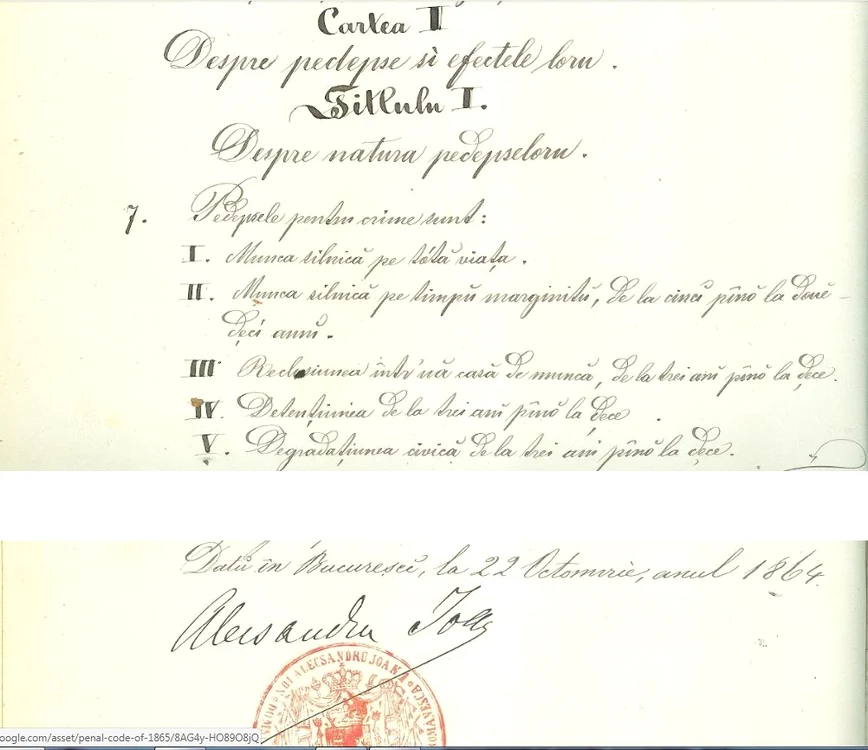 Cartea I
Despre pedepse si efectele loru.
Titlulu I.
Despre natura pedepseloru.
7. Pedepsele pentru crime sunt:
I. Munca silnică pe tótă viața.
II. Munca silnică pe timpŭ marginitŭ, de la cinci pînŏ la douĕ-
deci anni.
III Reclusiunea într'uă casă de muncă, de la trei ani pînŏ la dece.
IV. Detențiunea de la trei ani pînŏ la dece.
V. Degradațiunea civică de la trei ani pînŏ la dece.
Datu în Bucuresci, la 22 Octomvrie, anul 1864.
Alecsandru Ioan
NOI ALECSANDRU JOAN I
oogle.com/asset/penal-code-of-1865/8AG4y-HO89O8jQ